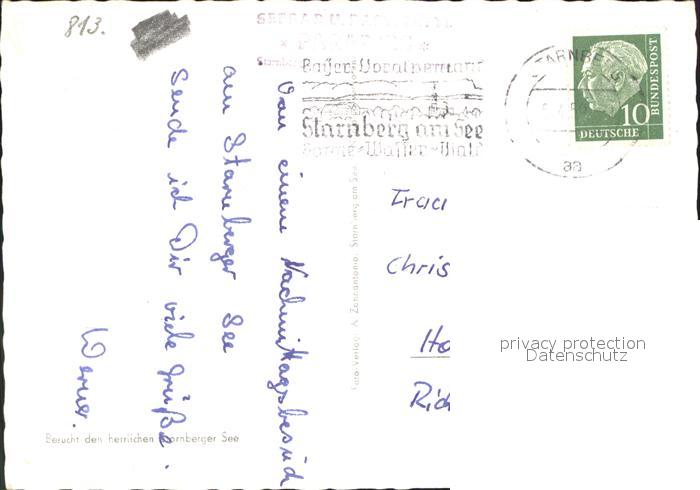 813.
SEEBAD U.
Bayer. Voralpenland
Starnberg am See
Sonne-Wasser-Wald
STARNBERG
aa
10
DEUTSCHE
BUNDESPOST
Von einem Nachmittagsbesuch
am Starnberger See
sende ich Dir viele Grüße.
Werner.
Foto-Verlag A. Zennantonio, Starnberg am See
Frau
Chris
Ho
Rid
privacy protection
Datenschutz
Besucht den herrlichen Starnberger See